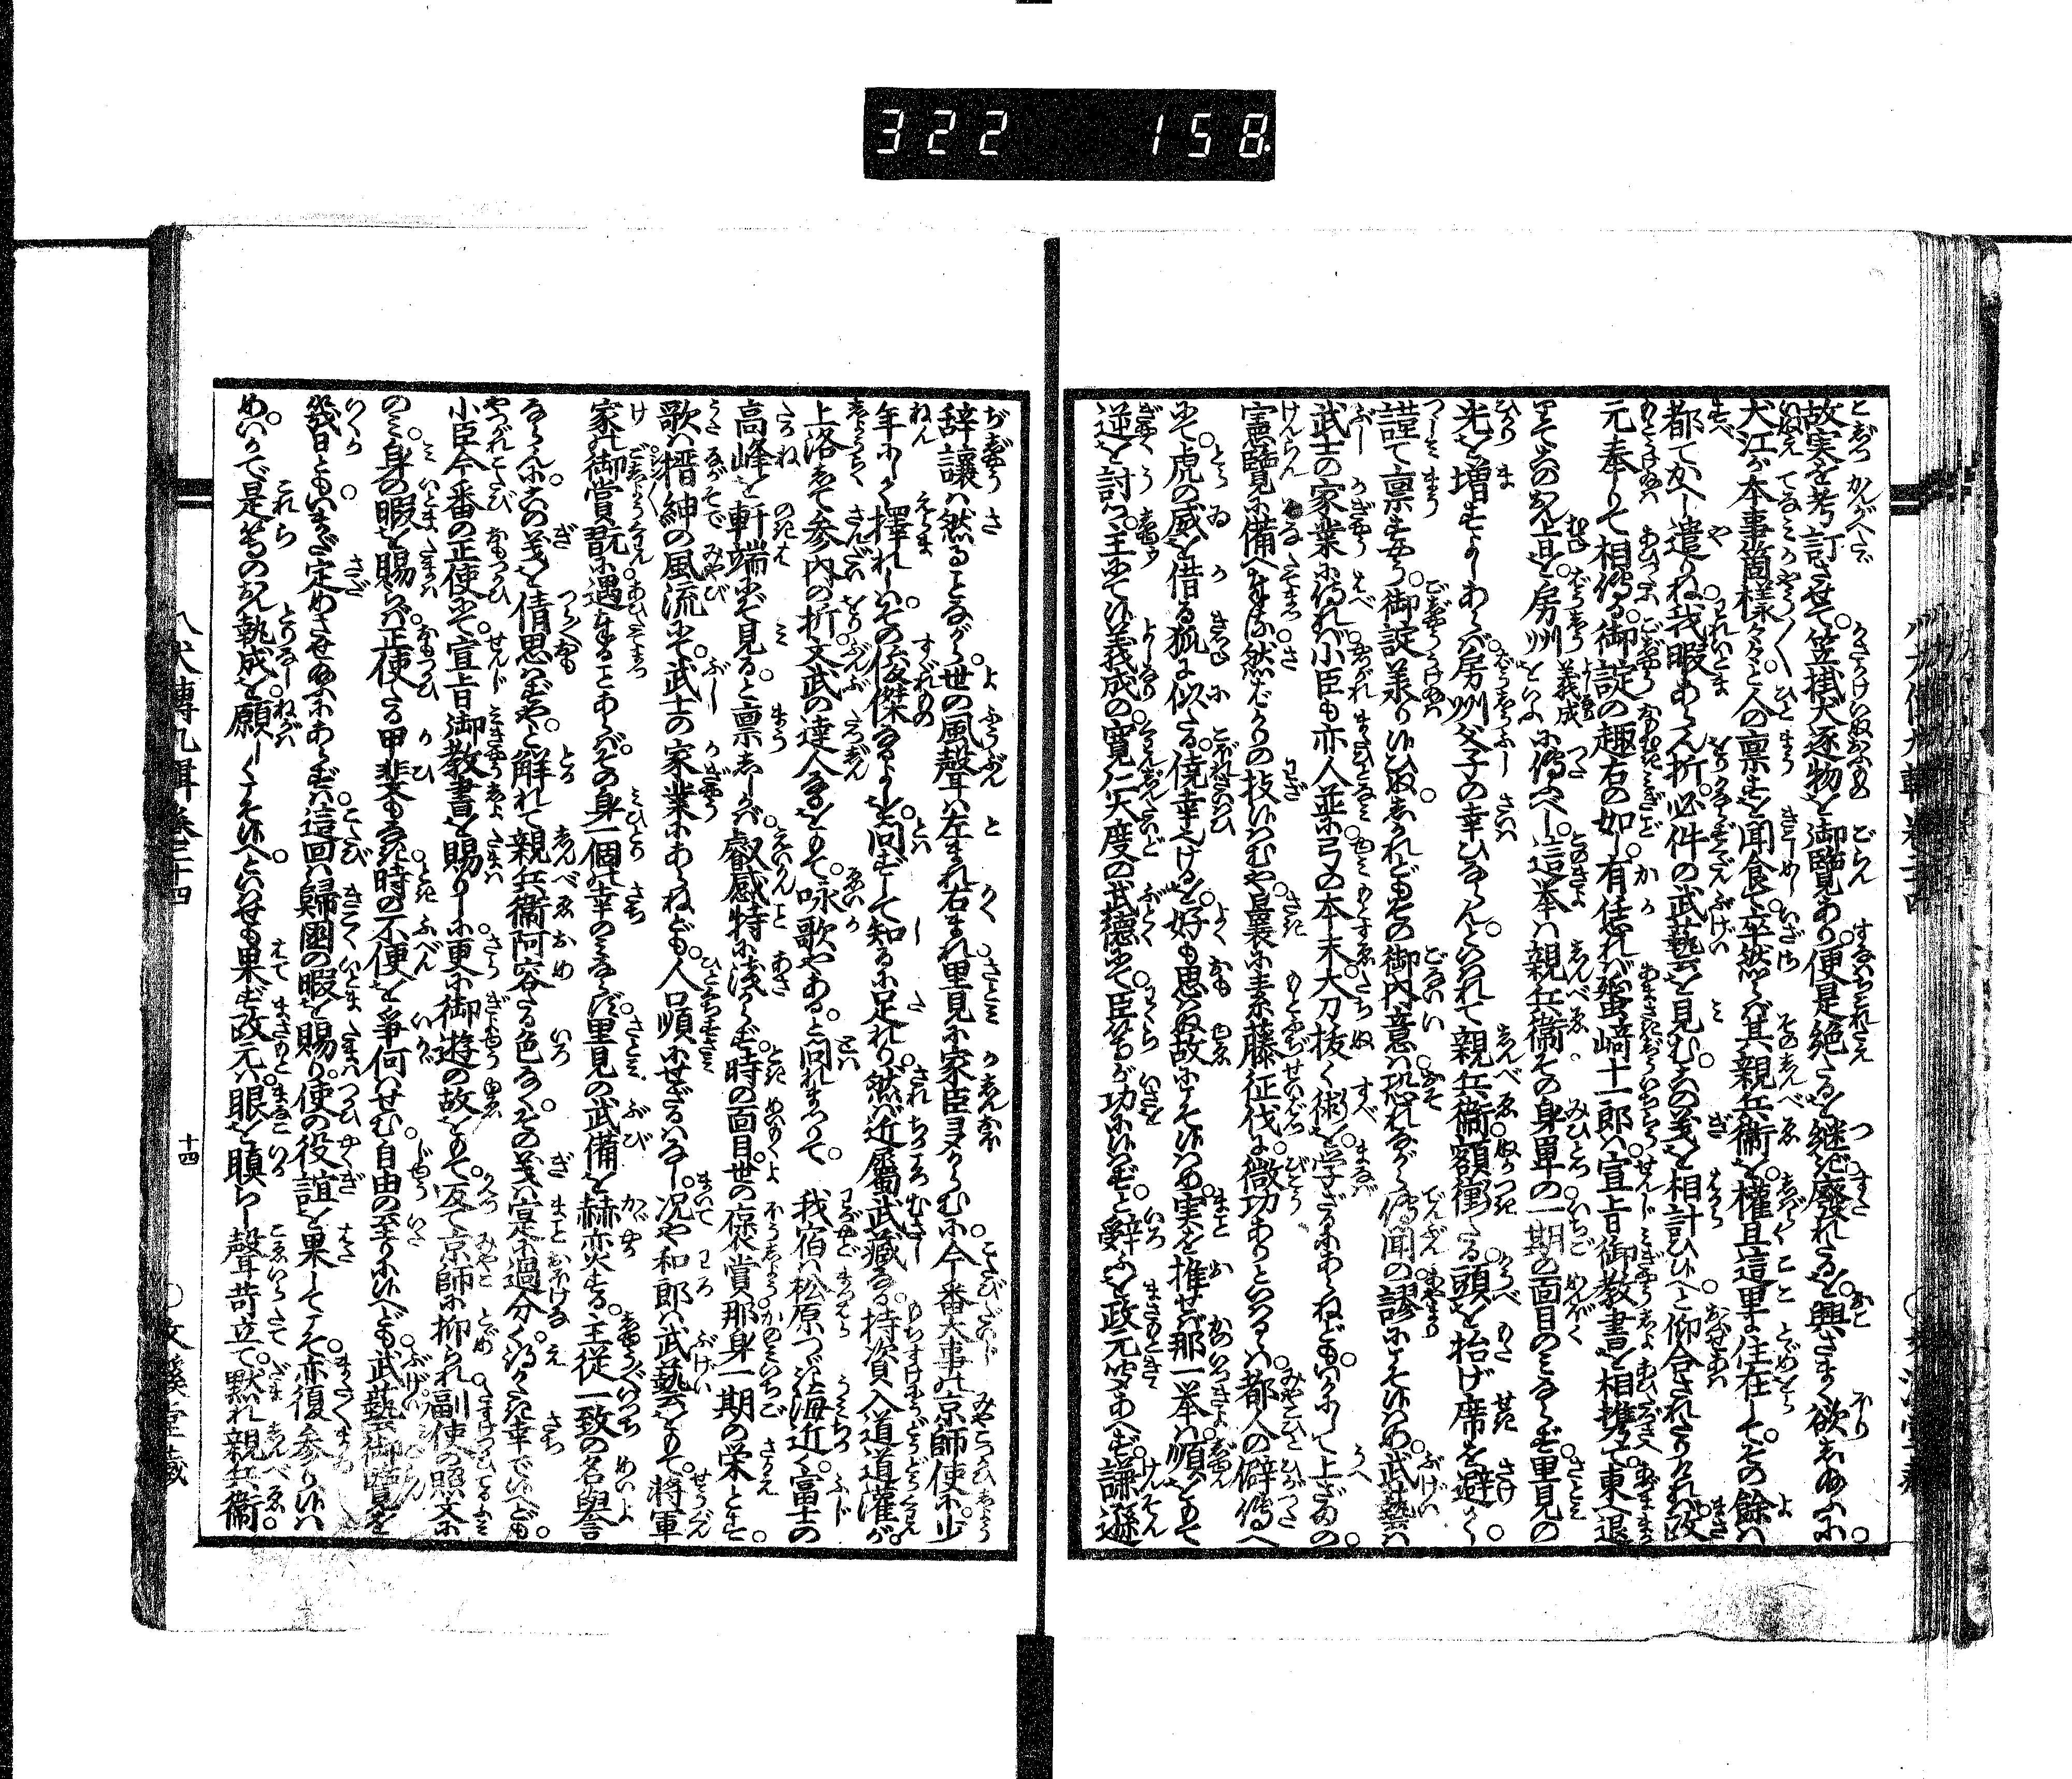 322 158
故実を考訂させて。笠掛犬逐物を御覧あり。便是絶たるを継ぎ。廃れたるを興さまく欲しあふに。
犬江が本事箇様々々と。人の禀すを聞食。卒然らば其親兵衛を。権且這里に住在して。その餘は
都てかへし遣りね。我暇あらん折。必件の武藝を見む。この義を相計ひひへと仰合されたりければ政
元奉りて相傳る。御諚の趣右の如し。有恁れば蜑崎十一郎は。宣旨御教書を相携て。東へ退
りてこのよし[旨]を房州義成をいふに傳ふべし。這挙は親兵衛その身単の一期の面目のみならず里見の
光を増すよしあらば。房州父子の幸ひならん。といはれて親兵衛。額衝たる頭を抬げ席を避て。
謹て禀すやう。御諚義りひぬ。しかれどもその御内意は恐れながら傳聞の謬にこそひはめ。武藝は
武士の家業に侍れば。小臣も亦人並に弓の本末大刀抜く術を学ざるにあらねども。いかにして上ざまの
憲覧に備へまつるべき。然ばかりの技ひはむや。曩に素藤征伐に微功ありといはるゝは。都人の僻傳へ
にて。虎の威を借る狐に似たる。僥幸にけるを。好も思はぬ故にこそひはめ。実を推せば那一挙は。順をもて
逆を討つ。主にてひ義成の寛仁大度の武徳にて。臣等が功にひはず。と辞ふを政元笑あへず。謙遜
辞讓は然ることながら。世の風聲は左まれ右まれ。里見に家臣多からむに。今番大事の京師使に。少
年にして擇れしは。その俊傑なるよしを。問ずして知るに足れり。然ば近属武藏なる。持資入道道灌が。
上洛して参内の折。文武の達人なるをもて。咏歌やある。と問れまつりて 我宿は松原つゞき海近く。富士の
高峰を軒端にぞ見る。と禀ししかば。叡感特に淺からず。時の面目。世の褒賞。那身一期の栄とす。
歌は搢紳の風流にて。武士の家業にあらねども。人口頻にせざるはなし。况や和郎は武藝をもて。將軍
家の御賞玩に遇まつることあらば。その身一個の幸のみならず。里見の武備を赫亦す。主従一致の名誉
ならんに。この義を倩思はずや。と解れて親兵衛阿容たる色なく。その義は寔に過分く。得がたき幸でひへども。
小臣今番の正使にて。宣旨御教書を賜りしに。更に御遊の故をもて。反て京師に抑られ。副使の照文に
のみ身の暇を賜らば。正使たる甲斐もなき。時の不便を爭何はせむ。自由の至りにひへども。武藝御覧を
幾日ともいまだ定めさせあふにあらずは。這回は歸國の暇を賜り。使の役誼を果してこそ。亦復参りひは
め。いかで是等のよし執成を願しくこそひへ。といはせも果ず政元は。眼を瞋らし聲苛立て。黙れ親兵衛。
八犬傳九輯巻三十四
十四
○文溪堂藏